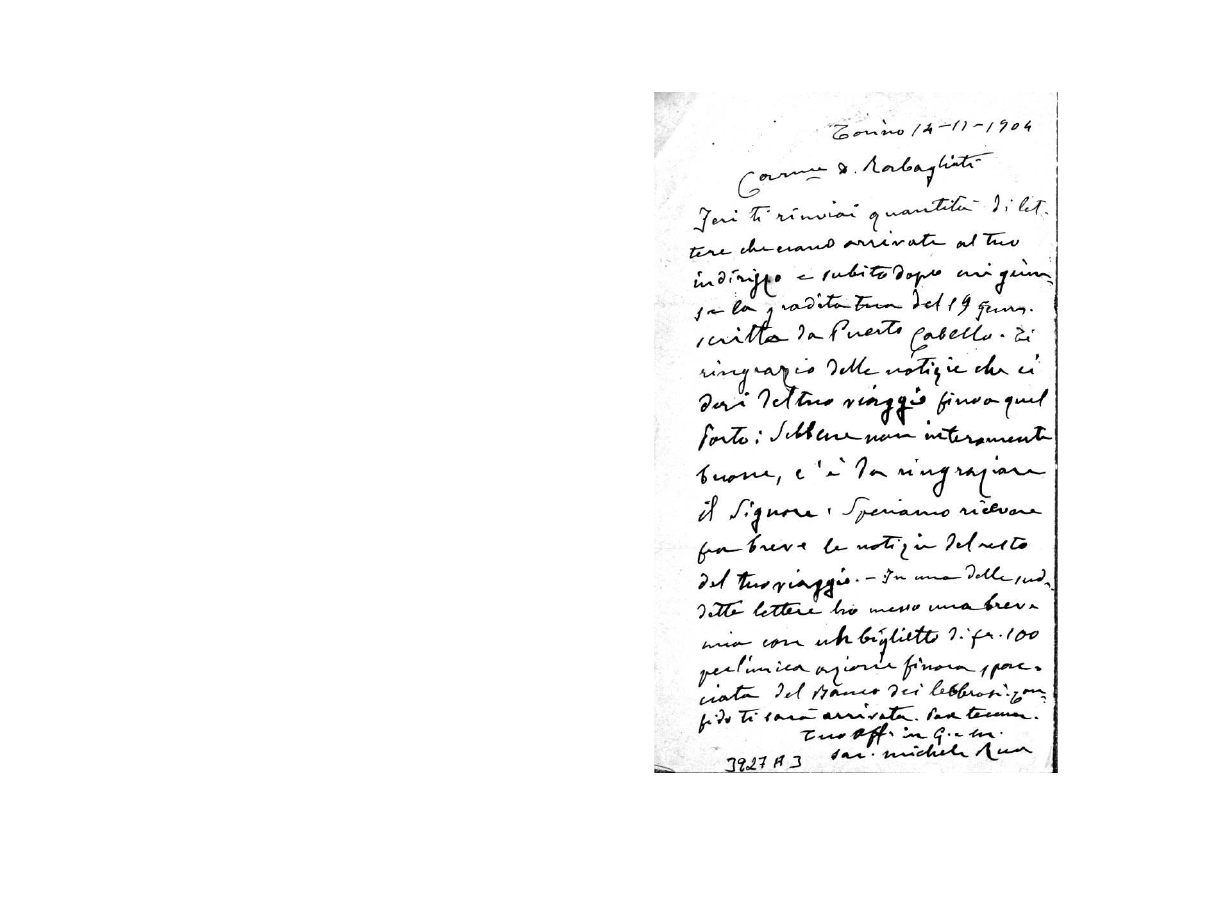 Torino 14-11-1904
Carmo D. Rabagliati
Jeri ti rinviai quantità di let-
tere che erano arrivate al tuo
indirizzo e subito dopo mi giun-
se la gradita tua del 19 genn.
scritta da Puerto Cabello. Ti
ringrazio delle notizie che ci
dari del tuo viaggio fino a quel
Porto; sebbene non interamente
buone, c'è da ringraziare
il Signore. Speriamo ricevere
fra breve le notizie del resto
del tuo viaggio. - In una delle sud-
dette lettere ho messo una breve
mia con un biglietto di fr. 100
per l'unica azione finora spac-
ciata del Banco dei lebbrosi. Con-
fido ti sarà arrivata. Pax tecum.
Tuo aff. in G. e M.
Sac. Michele Rua
3927 A 3